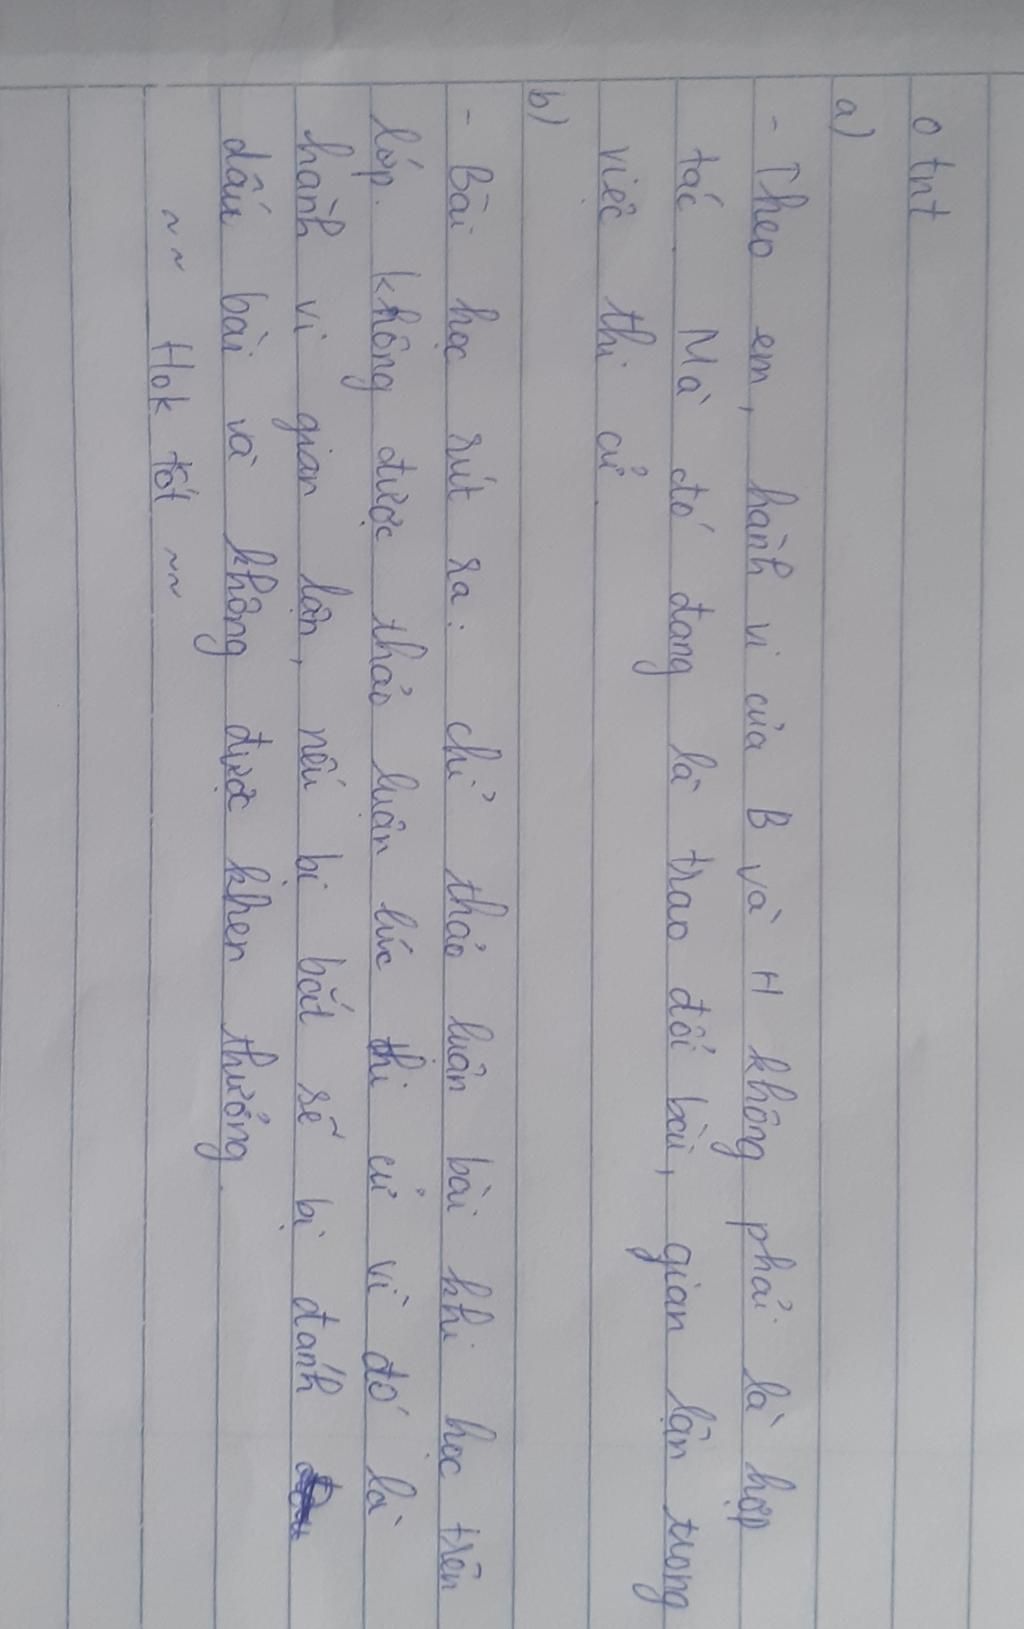 o tnt
a)
- Theo em, hành vi của B và H không phải là hợp
tác. Mà đó đang là trao đổi bài, gian lận trong
việc thi cử.
b)
- Bài học rút ra: chỉ thảo luận bài khi học trên
lớp. không được thảo luận lúc thi cử vì đó là
hành vi gian lận, nếu bị bắt sẽ bị đánh
dấu bài và không được khen thưởng.
~~ Hok tốt ~~